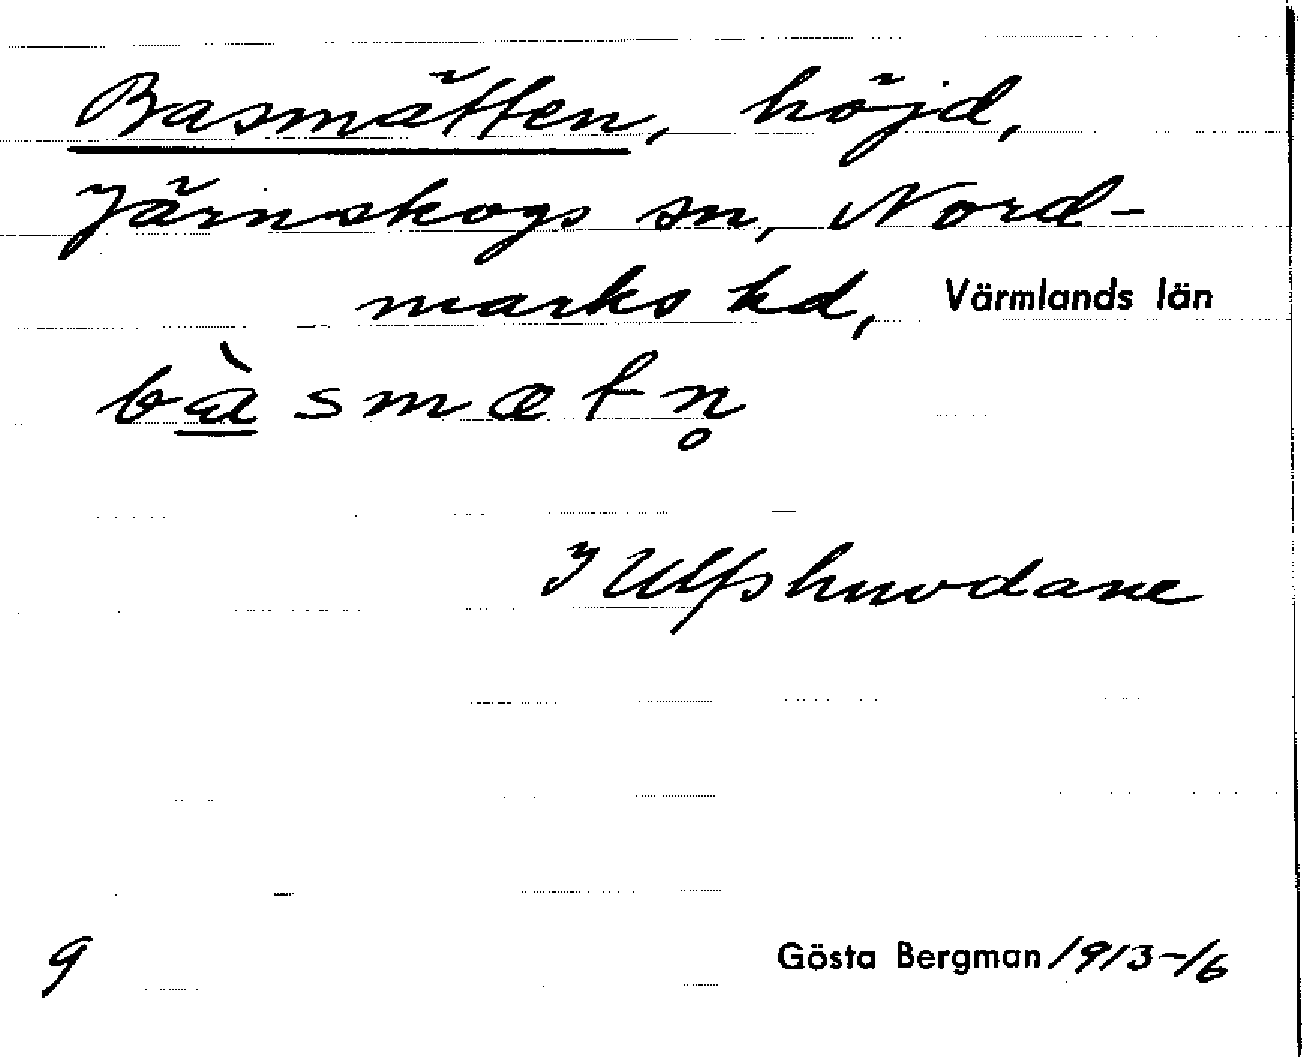 Basmätten, höjd,
Järnskogs sn, Nord-
marks hd, Värmlands län
bàsmætn̥
I Ulfshuvdane
9
Gösta Bergman 1913-16